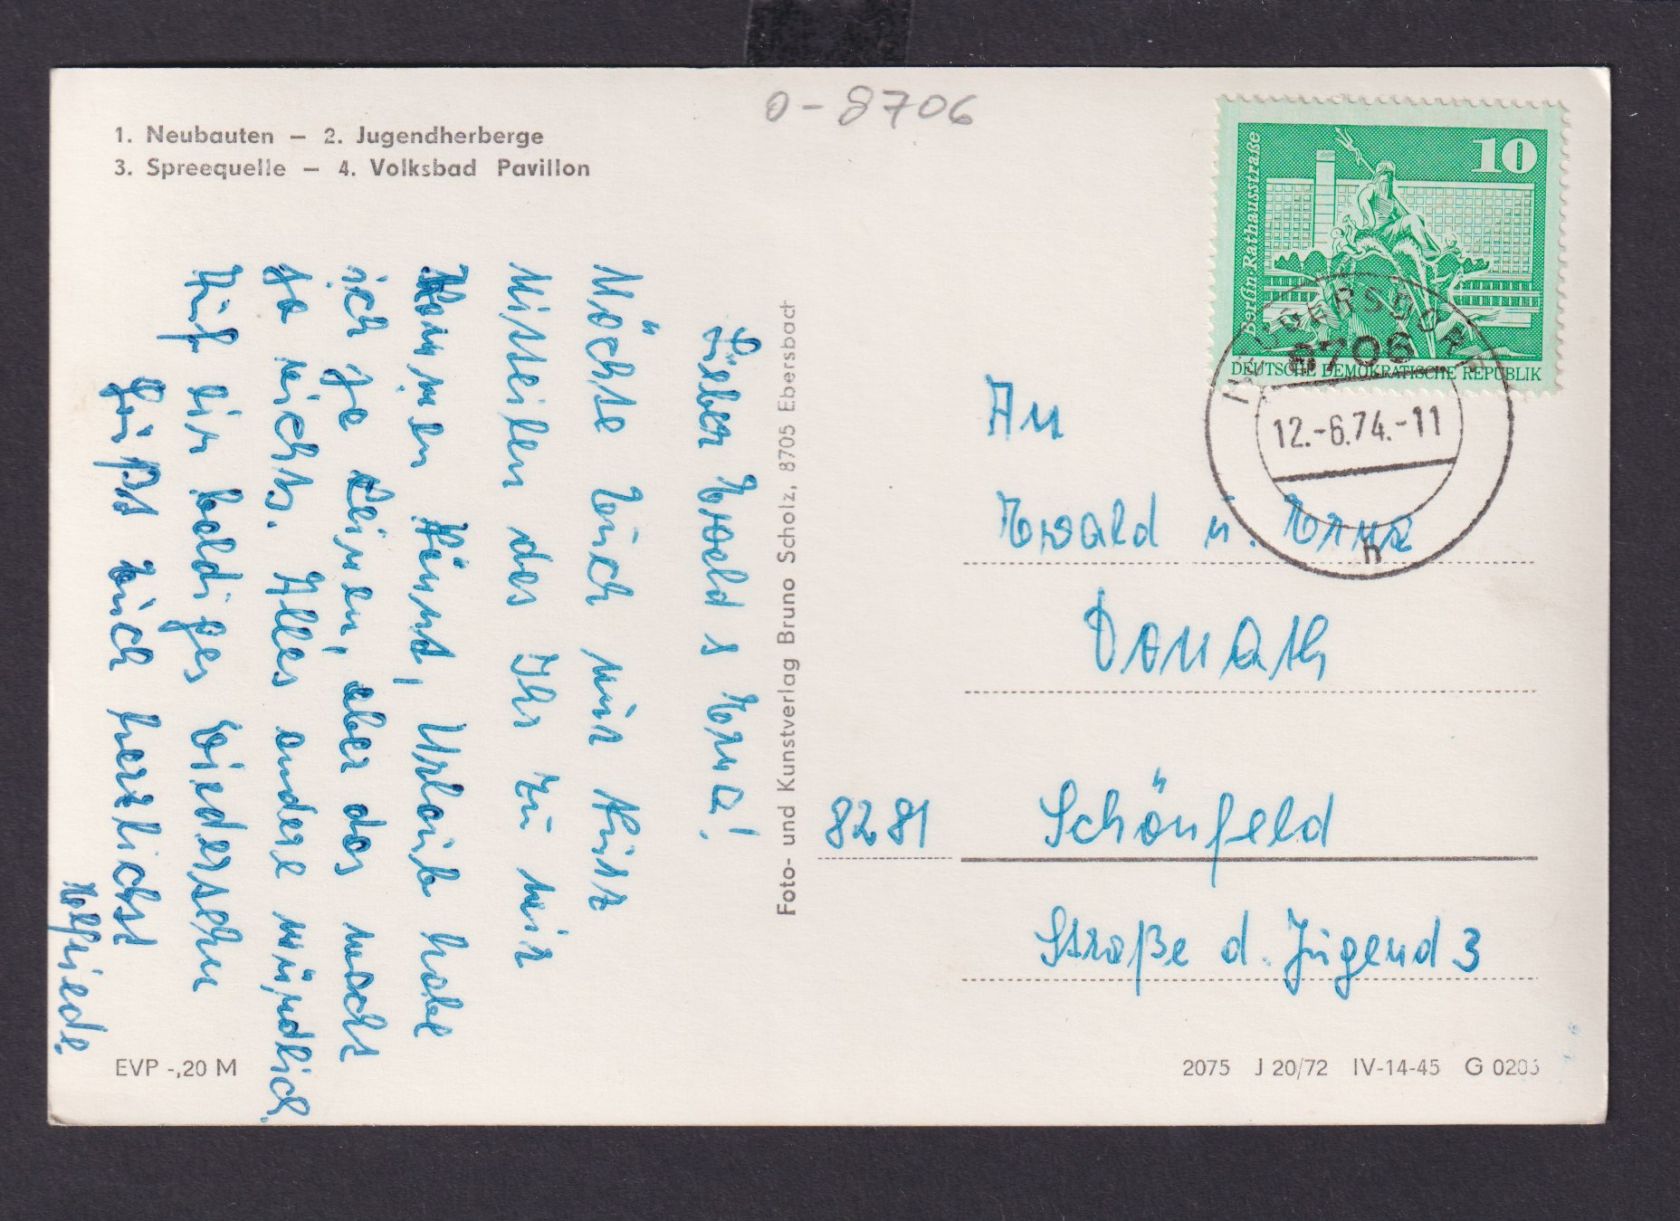 0-8706
1. Neubauten – 2. Jugendherberge
3. Spreequelle – 4. Volksbad Pavillon
Lieber Ewald u Erna!
Möchte Euch nur kurz
mitteilen das Ihr zu mir
kommen könnt, Urlaub habe
ich ja keinen, aber das macht
ja nichts. Alles andere mündlich.
Auf ein baldiges Wiedersehn
grüßt Euch herzlichst
Elfriede.
EVP -,20 M
Foto- und Kunstverlag Bruno Scholz, 8705 Ebersbach
10
Berlin·Rathausstraße
DEUTSCHE DEMOKRATISCHE REPUBLIK
8706
12.-6.74.-11
h
An
Ewald u. Erna
Donath
8281 Schönfeld
Straße d. Jugend 3
2075 J 20/72 IV-14-45 G 0205